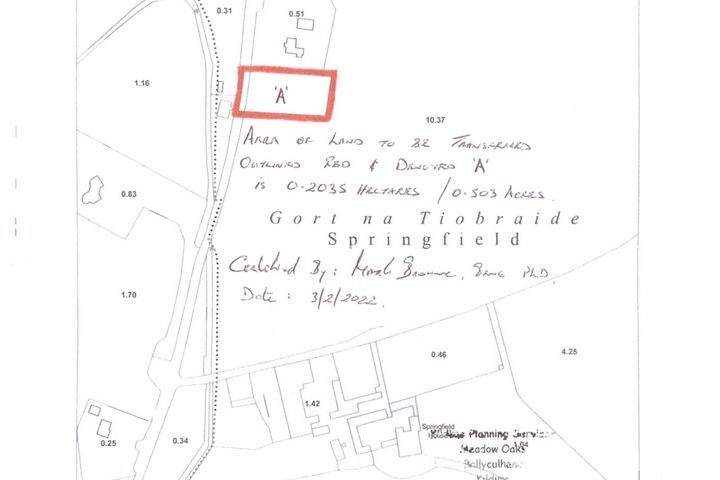 0.31
0.51
1.16
'A'
10.37
AREA OF LAND TO BE TRANSFERRED
OUTLINED RED & DENOTED 'A'
is 0.2035 HECTARES / 0.503 ACRES.
0.83
Gort na Tiobraide
Springfield
Certified By: Mark Browne, BEng Ph.D
Date: 3/2/2022.
1.70
0.46
4.25
1.42
Springfield
Planning Service
1.04
Meadow Oaks
0.25
0.34